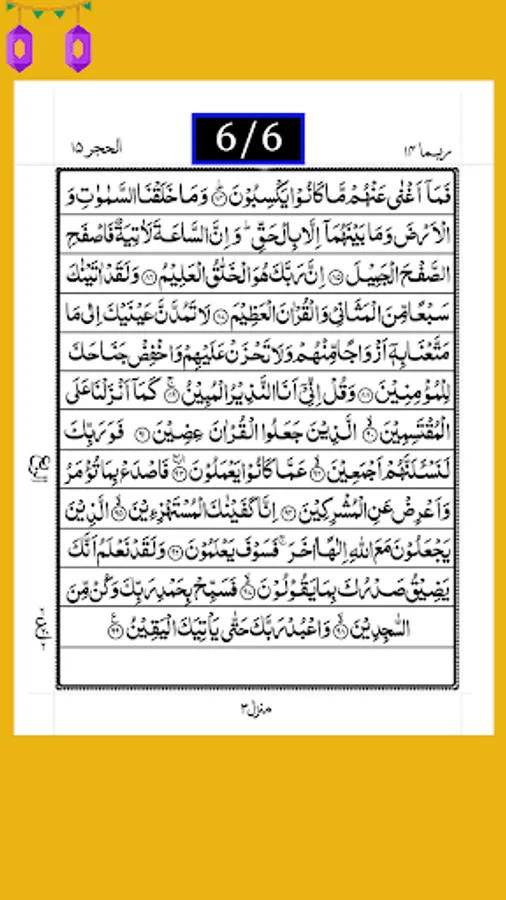 الحجر ۱۵
6/6
ربما ۱۴
فَمَاۤ اَغْنٰى عَنْهُمْ مَّا كَانُوْا يَكْسِبُوْنَ ۝۸۴ وَ مَا خَلَقْنَا السَّمٰوٰتِ وَ
الْاَرْضَ وَ مَا بَيْنَهُمَاۤ اِلَّا بِالْحَقِّ ؕ وَ اِنَّ السَّاعَةَ لَاٰتِيَةٌ فَاصْفَحِ
الصَّفْحَ الْجَمِيْلَ ۝۸۵ اِنَّ رَبَّكَ هُوَ الْخَلّٰقُ الْعَلِيْمُ ۝۸۶ وَ لَقَدْ اٰتَيْنٰكَ
سَبْعًا مِّنَ الْمَثَانِيْ وَ الْقُرْاٰنَ الْعَظِيْمَ ۝۸۷ لَا تَمُدَّنَّ عَيْنَيْكَ اِلٰى مَا
مَتَّعْنَا بِهٖۤ اَزْوَاجًا مِّنْهُمْ وَ لَا تَحْزَنْ عَلَيْهِمْ وَ اخْفِضْ جَنَاحَكَ
لِلْمُؤْمِنِيْنَ ۝۸۸ وَ قُلْ اِنِّيْۤ اَنَا النَّذِيْرُ الْمُبِيْنُ ۝۸۹ كَمَاۤ اَنْزَلْنَا عَلَى
الْمُقْتَسِمِيْنَ ۝۹۰ الَّذِيْنَ جَعَلُوا الْقُرْاٰنَ عِضِيْنَ ۝۹۱ فَوَرَبِّكَ
لَنَسْـَٔلَنَّهُمْ اَجْمَعِيْنَ ۝۹۲ عَمَّا كَانُوْا يَعْمَلُوْنَ ۝۹۳ فَاصْدَعْ بِمَا تُؤْمَرُ
وَ اَعْرِضْ عَنِ الْمُشْرِكِيْنَ ۝۹۴ اِنَّا كَفَيْنٰكَ الْمُسْتَهْزِءِيْنَ ۝۹۵ الَّذِيْنَ
يَجْعَلُوْنَ مَعَ اللّٰهِ اِلٰهًا اٰخَرَ ۚ فَسَوْفَ يَعْلَمُوْنَ ۝۹۶ وَ لَقَدْ نَعْلَمُ اَنَّكَ
يَضِيْقُ صَدْرُكَ بِمَا يَقُوْلُوْنَ ۝۹۷ فَسَبِّحْ بِحَمْدِ رَبِّكَ وَ كُنْ مِّنَ
السّٰجِدِيْنَ ۝۹۸ وَ اعْبُدْ رَبَّكَ حَتّٰى يَاْتِيَكَ الْيَقِيْنُ ۝۹۹
منزل ۳